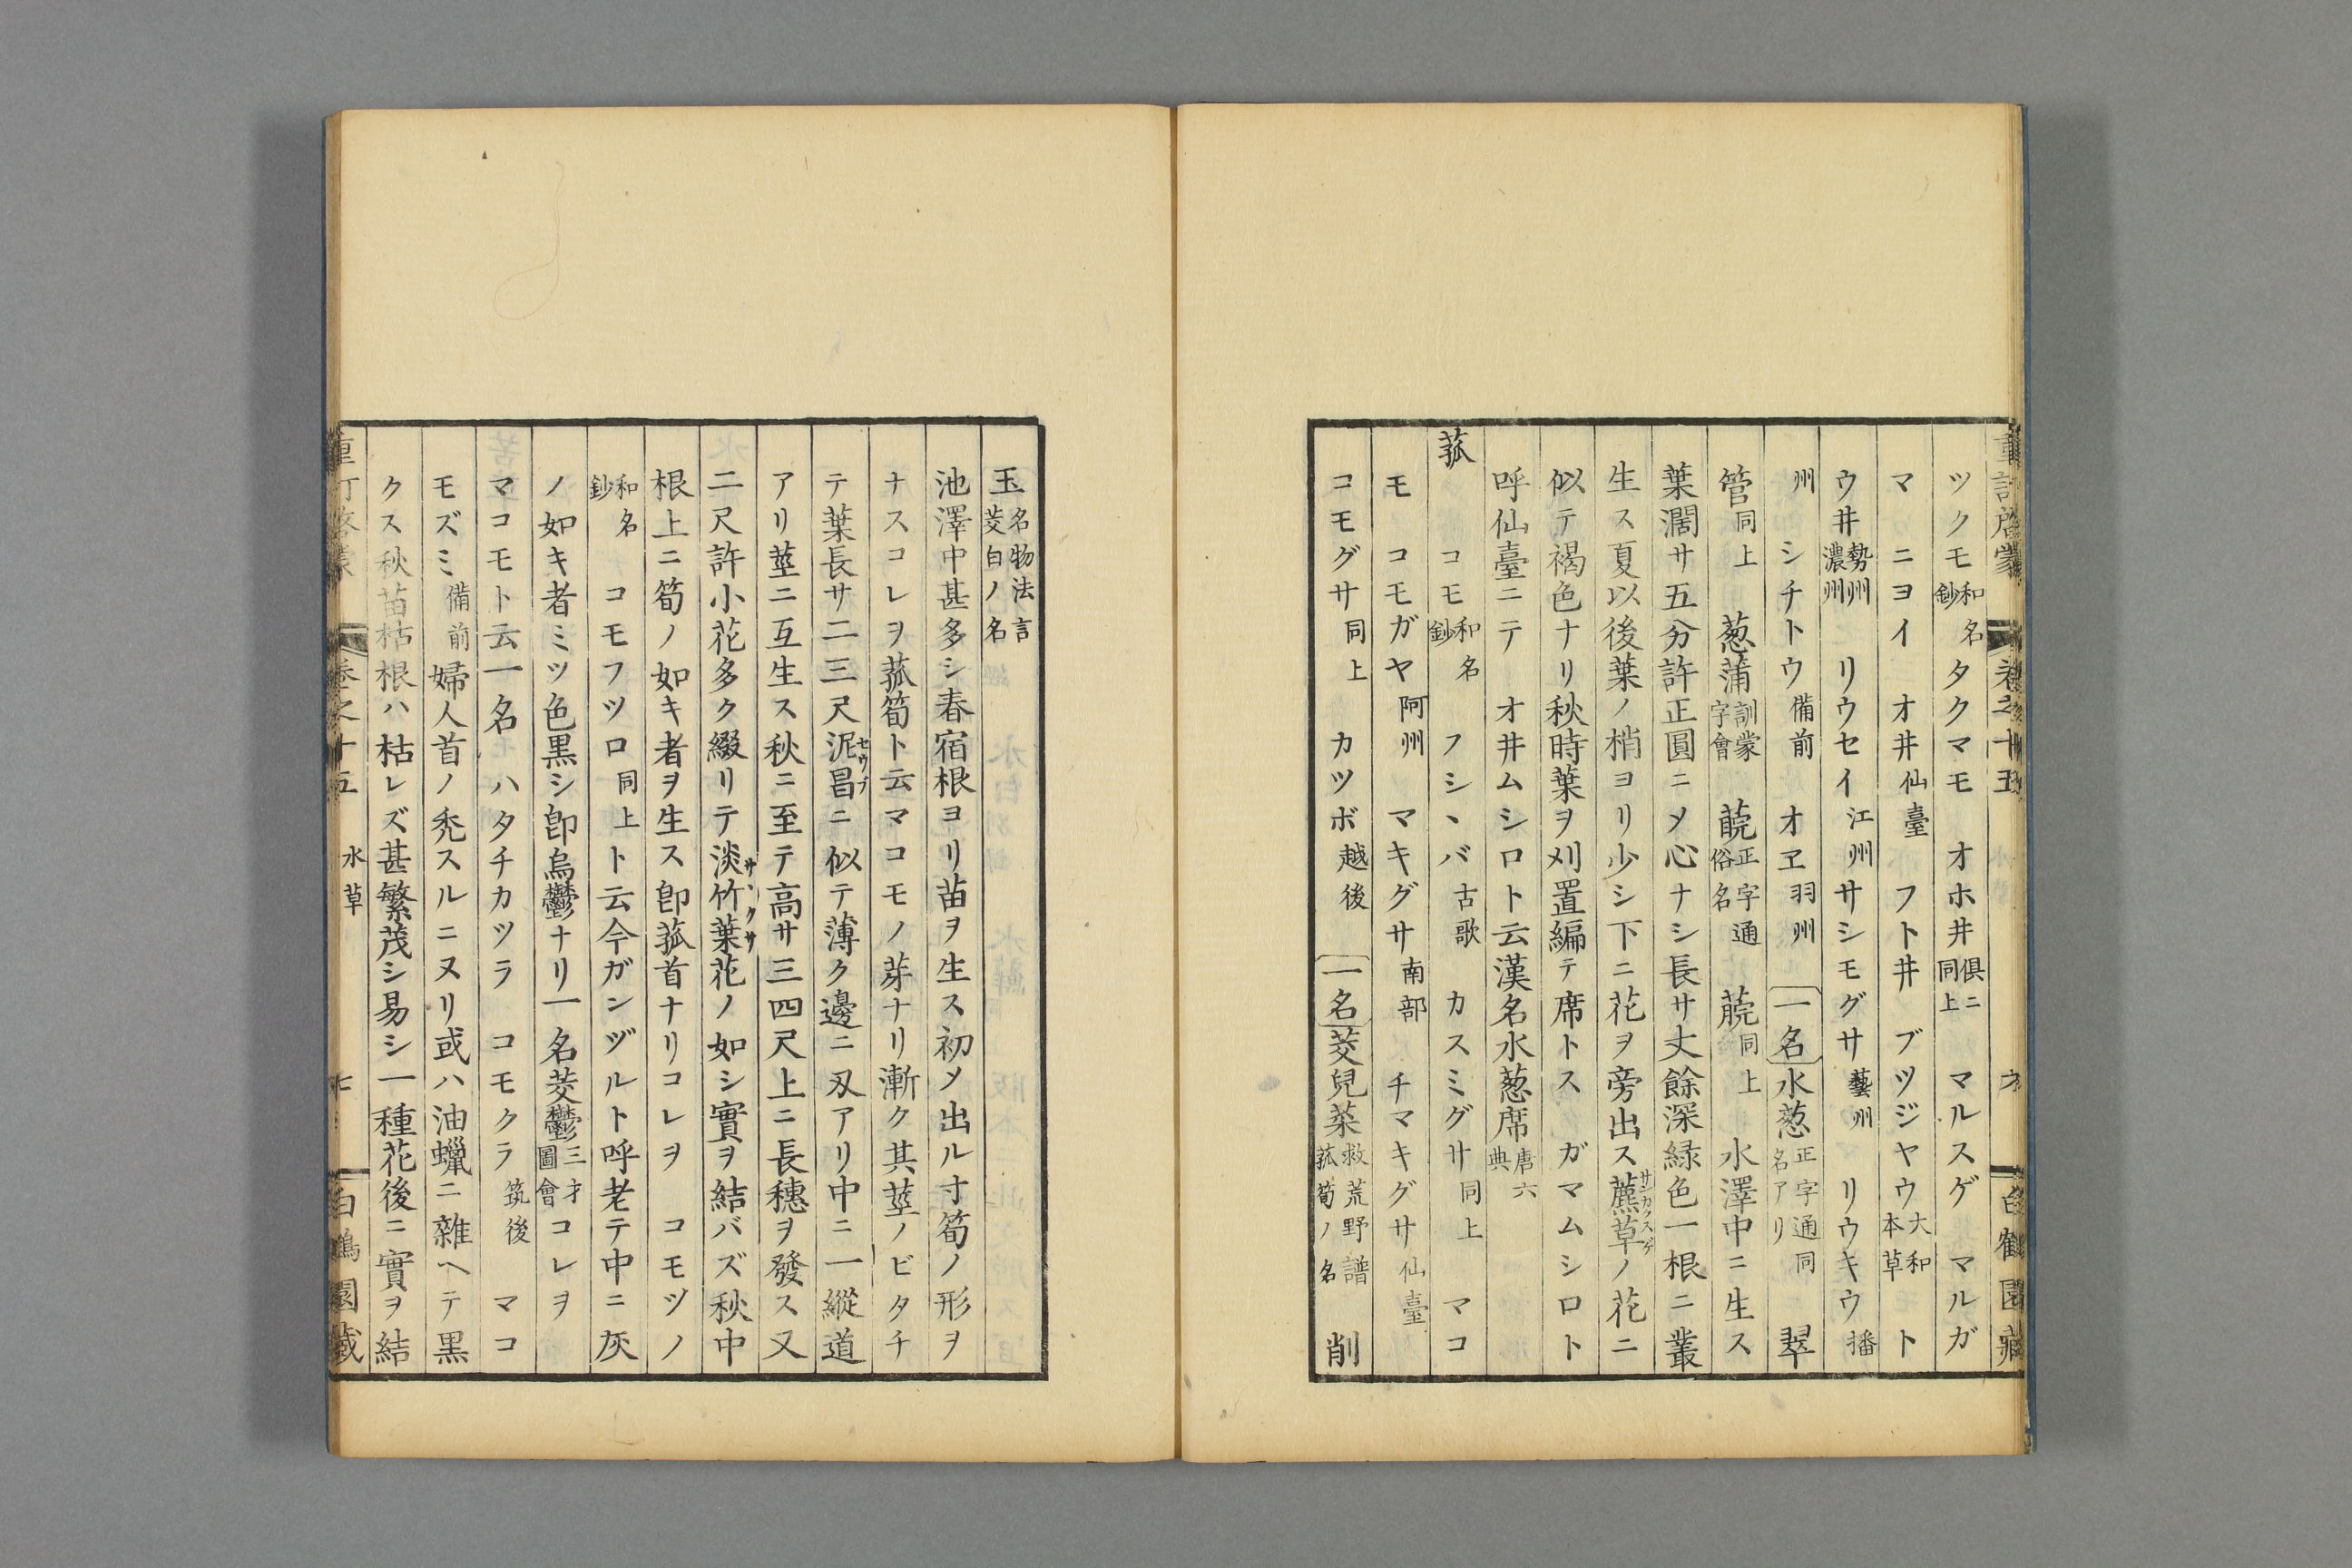 重訂啓蒙 卷之十五 六 白鶴園藏
ツクモ和名鈔 タクマモ オホ井俱ニ同上 マルスゲ マルガ
マ ニヨイ オ井仙臺 フト井 ブツジヤウ大和本草 ト
ウ井勢州濃州 リウセイ江州 サシモグサ藝州 リウキウ播
州 シチトウ備前 オヱ羽州 一名水葱正字通同名アリ 翠
管同上 葱蒲訓蒙字會 蒄正字通俗名 莞同上 水澤中ニ生ス
葉濶サ五分許正圓ニメ心ナシ長サ丈餘深緑色一根ニ叢
生ス夏以後葉ノ梢ヨリ少シ下ニ花ヲ旁出ス藨草サンカクスゲノ花ニ
似テ褐色ナリ秋時葉ヲ刈置編テ席トス ガマムシロト
呼仙臺ニテ オ井ムシロト云漢名水葱席唐六典
菰 コモ和名鈔 フシヽバ古歌 カスミグサ同上 マコ
モ コモガヤ阿州 マキグサ南部 チマキグサ仙臺
コモグサ同上 カツボ越後 一名茭兒菜救荒野譜菰筍ノ名 削
玉名物法言茭白ノ名
池澤中甚多シ春宿根ヨリ苗ヲ生ス初メ出ル寸筍ノ形ヲ
ナスコレヲ菰筍ト云マコモノ芽ナリ漸ク其莖ノビタチ
テ葉長サ二三尺泥昌セウブニ似テ薄ク邊ニ刄アリ中ニ一縱道
アリ莖ニ互生ス秋ニ至テ高サ三四尺上ニ長穗ヲ發ス又
二尺許小花多ク綴リテ淡竹葉サヽクサ花ノ如シ實ヲ結バズ秋中
根上ニ筍ノ如キ者ヲ生ス卽菰首ナリコレヲ コモヅノ
和名鈔 コモフツロ同上ト云今ガンヅルト呼老テ中ニ灰
ノ如キ者ミツ色黒シ卽烏鬱ナリ一名茭鬱三才圖會コレヲ
マコモト云一名 ハタチカツラ コモクラ筑後 マコ
モズミ備前 婦人首ノ禿スルニヌリ或ハ油蠟ニ雜ヘテ黒
クス秋苗枯根ハ枯レズ甚繁茂シ易シ一種花後ニ實ヲ結
重訂啓蒙 卷之十五 水草 七 白鶴園藏